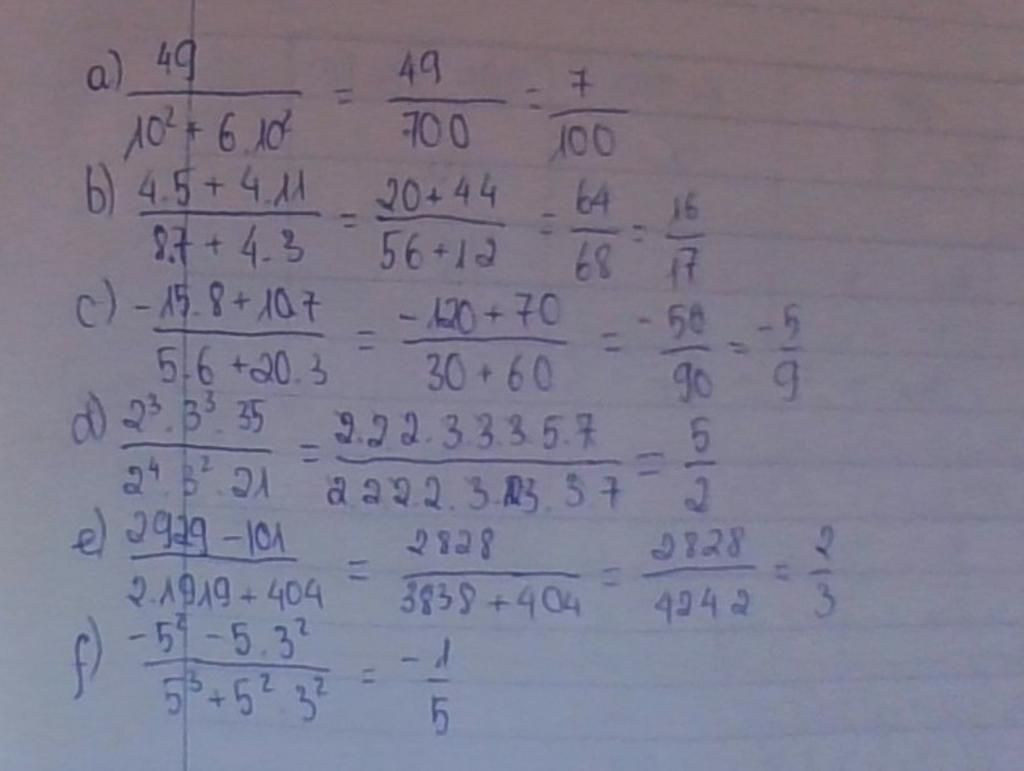 a) 49 / (10² + 6.10²) = 49/700 = 7/100
b) (4.5 + 4.11) / (8.7 + 4.3) = (20+44) / (56+12) = 64/68 = 16/17
c) (-15.8+10.7) / (5.6+20.3) = (-120+70) / (30+60) = -50/90 = -5/9
d) (2³.3³.35) / (2⁴.3².21) = (2.2.2.3.3.3.5.7) / (2.2.2.2.3.3.3.7) = 5/2
e) (2929-101) / (2.1919+404) = 2828 / (3838+404) = 2828/4242 = 2/3
f) (-5² - 5.3²) / (5³+5².3²) = -1/5